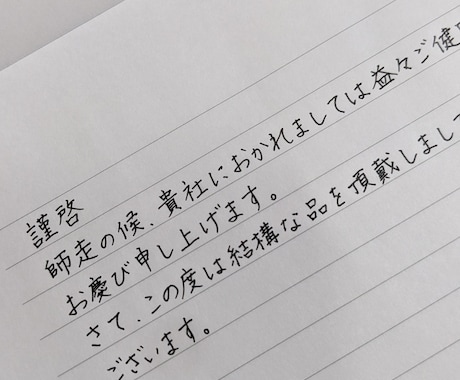 謹啓
師走の候、貴社におかれましては益々ご健
お慶び申し上げます。
さて、この度は結構な品を頂戴しまして
ございます。